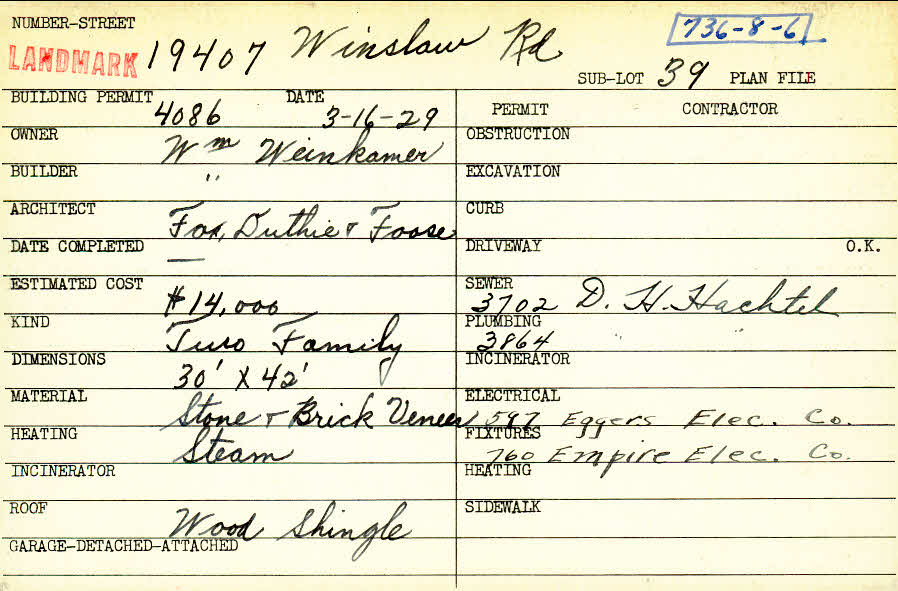 NUMBER-STREET
LANDMARK 19407 Winslow Rd 736-8-6
SUB-LOT 39 PLAN FILE
BUILDING PERMIT 4086 DATE 3-16-29
OWNER Wm Weinkamer
BUILDER "
ARCHITECT Fox, Duthie & Foose
DATE COMPLETED —
ESTIMATED COST $14,000
KIND Two Family
DIMENSIONS 30' X 42'
MATERIAL Stone & Brick Veneer
HEATING Steam
INCINERATOR
ROOF Wood Shingle
GARAGE-DETACHED-ATTACHED
PERMIT CONTRACTOR
OBSTRUCTION
EXCAVATION
CURB
DRIVEWAY O.K.
SEWER 3702 D. H. Hachtel
PLUMBING 3864 " "
INCINERATOR
ELECTRICAL 1597 Eggers Elec. Co.
FIXTURES 760 Empire Elec. Co.
HEATING
SIDEWALK